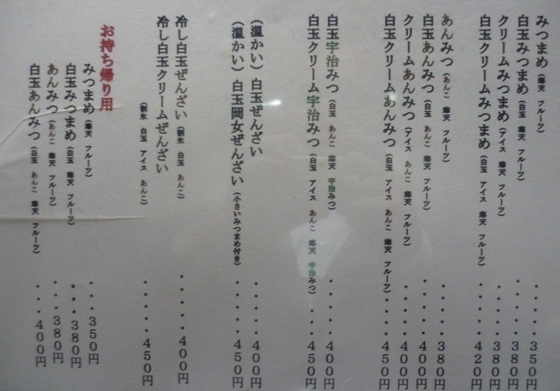 みつまめ(寒天 フルーツ)・・・・350円
白玉みつまめ(白玉 寒天 フルーツ)・・・・380円
クリームみつまめ(アイス 寒天 フルーツ)・・・・380円
白玉クリームみつまめ(白玉 アイス 寒天 フルーツ)・・・・420円
あんみつ(あんこ 寒天 フルーツ)・・・・380円
白玉あんみつ(白玉 あんこ 寒天 フルーツ)・・・・400円
クリームあんみつ(アイス あんこ 寒天 フルーツ)・・・・400円
白玉クリームあんみつ(白玉 アイス あんこ 寒天 フルーツ)・・・・450円
白玉宇治みつ(白玉 あんこ 寒天 宇治みつ)・・・・400円
白玉クリーム宇治みつ(白玉 アイス あんこ 寒天 宇治みつ)・・・・450円
(温かい)白玉ぜんざい・・・・・400円
(温かい)白玉岡女ぜんざい(小さいみつまめ付き)・・・・・450円
冷し白玉ぜんざい(割氷 白玉 あんこ)・・・・・400円
冷し白玉クリームぜんざい
(割氷 白玉 アイス あんこ)・・・・・450円
お持ち帰り用
みつまめ(寒天 フルーツ)・・・・350円
白玉みつまめ(白玉 寒天 フルーツ)・・・・380円
あんみつ(あんこ 寒天 フルーツ)・・・・380円
白玉あんみつ(白玉 あんこ 寒天 フルーツ)・・・・400円